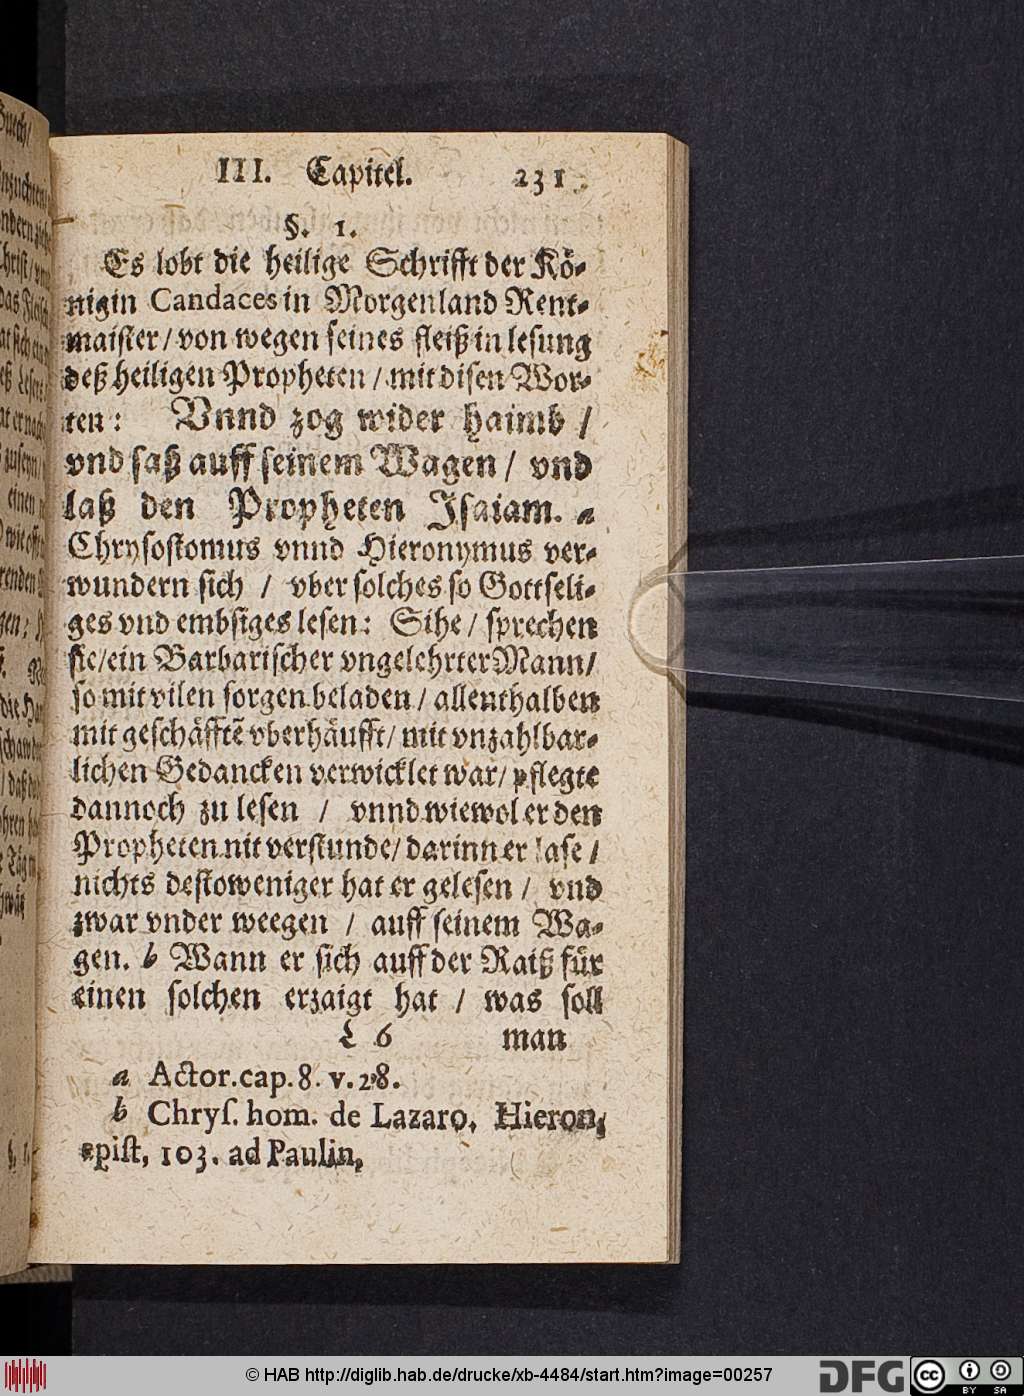 III. Capitel. 231
§. 1.
Es lobt die heilige Schrifft der Kö-
nigin Candaces in Morgenland Rent-
maister / von wegen seines fleiß in lesung
deß heiligen Propheten / mit disen Wor-
ten: Vnnd zog wider haimb /
vnd saß auff seinem Wagen / vnd
laß den Propheten Isaiam. a
Chrysostomus vnnd Hieronymus ver-
wundern sich / vber solches so Gottseli-
ges vnd embsiges lesen: Sihe / sprechen
sie/ein Barbarischer vngelehrter Mann/
so mit vilen sorgen beladen / allenthalben
mit geschäfftẽ vberhäufft/ mit vnzahlbar-
lichen Gedancken verwicklet war/ pflegte
dannoch zu lesen / vnnd wiewol er den
Propheten nit verstunde/ darinn er lase /
nichts destoweniger hat er gelesen / vnd
zwar vnder weegen / auff seinem Wa-
gen. b Wann er sich auff der Raiß für
einen solchen erzaigt hat / was soll
L 6 man
a Actor. cap. 8. v. 28.
b Chryſ. hom. de Lazaro, Hieron,
epiſt, 103. ad Paulin,
© HAB http://diglib.hab.de/drucke/xb-4484/start.htm?image=00257
DFG
cc BY SA